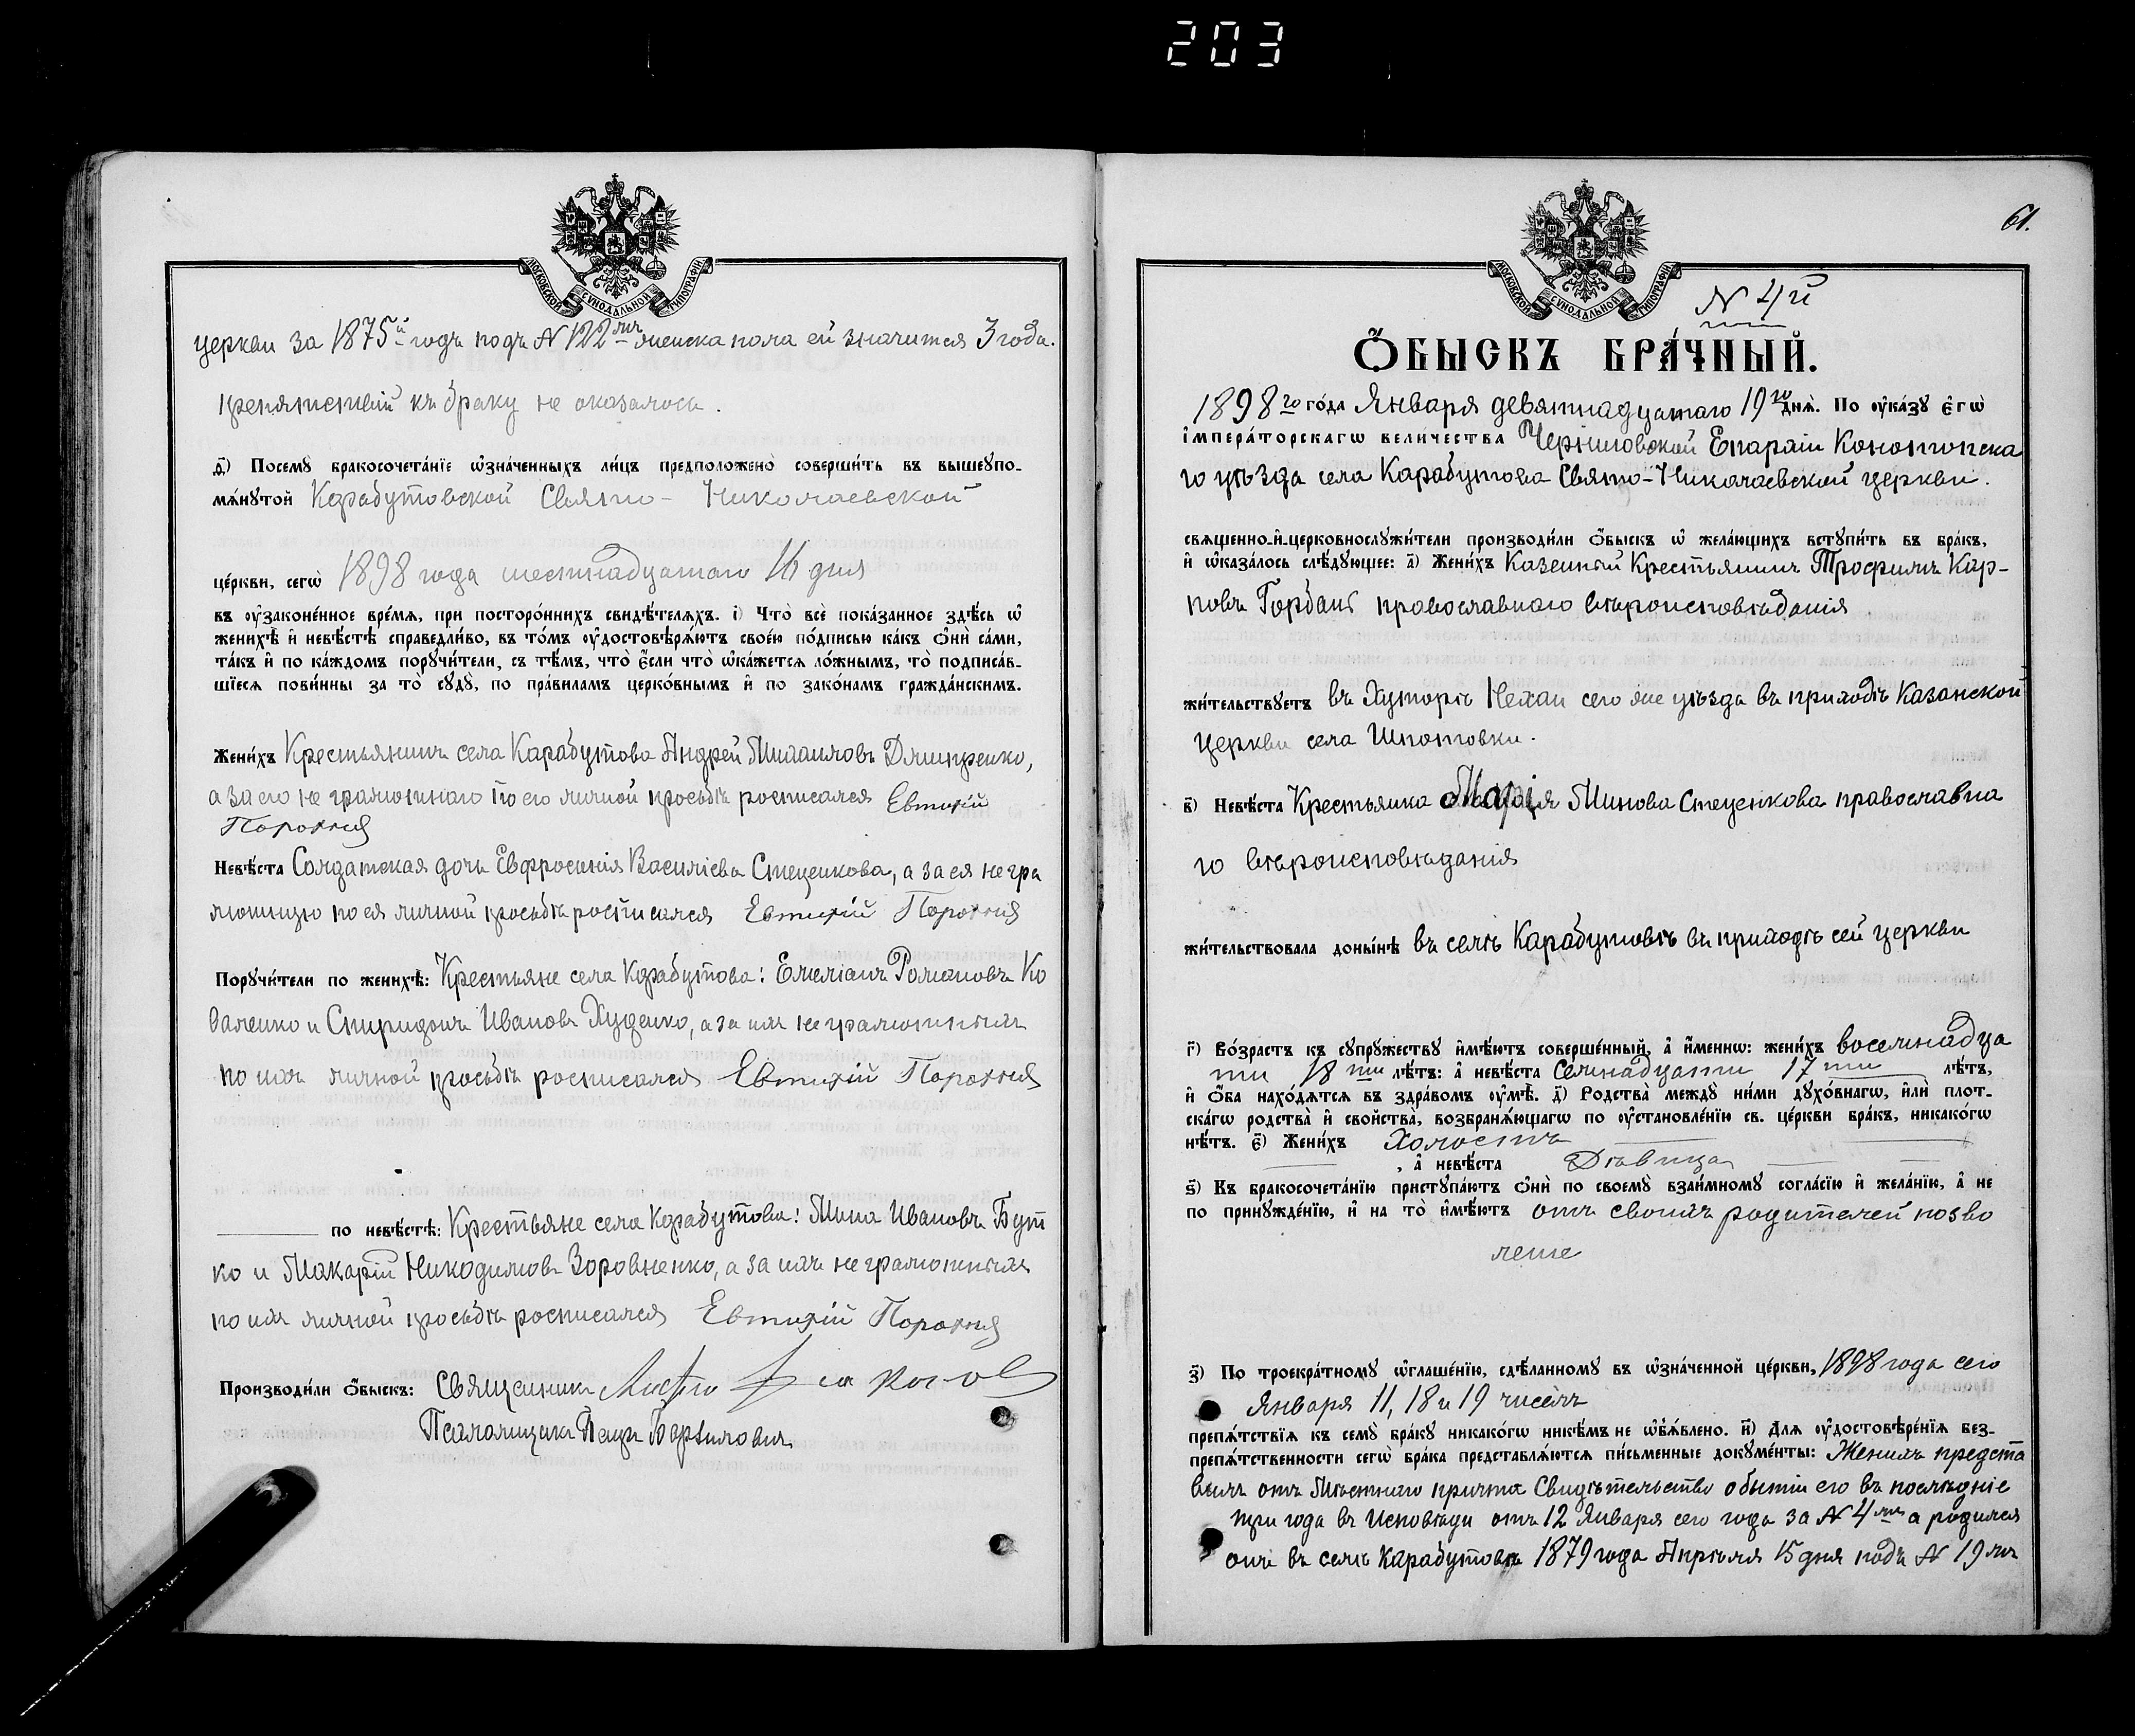 203
МОСКОВСКОЙ СѴНОДАЛЬНОЙ ТИПОГРАФІИ
церкви за 1875й годъ подъ № 122 мъ женска пола ей значится 3 года.
препятствій къ браку не оказалось.
д҃) Посемꙋ бракосочета́нїе ѡ҆зна́ченныхъ ли́цъ предположено̀ соверши́ть въ вышеупо-
мѧ́нꙋтой Карабутовской Свято-Николаевской
це́ркви, сегѡ̀ 1898 года шестнадцатаго 16 дня
въ ᲂу҆законе́нное вре́мѧ, при посторо́ннихъ свидѣ́телѧхъ. і҃) Что̀ всѐ пока́занное здѣ́сь ѡ҆
женихѣ̀ и҆ невѣ́стѣ справедли́во, въ то́мъ ᲂу҆достовѣрѧ́ютъ свое́ю по́дписью ка́къ ѻ҆нѝ са́ми,
та́къ и҆ по ка́ждомъ порꙋчи́тели, съ тѣ́мъ, что̀ є҆́сли что̀ ѡ҆ка́жетсѧ ло́жнымъ, то̀ подписа́в-
шїесѧ пови́нны за то̀ сꙋдꙋ̀, по пра́виламъ церко́внымъ и҆ по зако́намъ гражда́нскимъ.
Жени́хъ Крестьянинъ села Карабутова Андрей Михаиловъ Дмитренко,
а за его не грамотнаго по его личной просьбѣ росписался Евтихій
Порохня
Невѣ́ста Солдатская дочь Евфросинія Василіева Стеценкова, а за ея не гра
мотную по ея личной просьбѣ росписался Евтихій Порохня
Порꙋчи́тели по женихѣ̀: Крестьяне села Карабутова: Емеліанъ Романовъ Ко
валенко и Спиридонъ Ивановъ Худенко, а за ихъ не грамотныхъ
по ихъ личной просьбѣ росписался Евтихій Порохня
по невѣ́стѣ: Крестьяне села Карабутова: Мина Ивановъ Бут
ко и Макарій Никодимовъ Зоровненко, а за ихъ не грамотныхъ
по ихъ личной просьбѣ росписался Евтихій Порохня
Производи́ли ѻ҆́быскъ: Священникъ
Псаломщикъ
61.
МОСКОВСКОЙ СѴНОДАЛЬНОЙ ТИПОГРАФІИ
№ 4й
Ѻ҆́БЫСКЪ БРА́ЧНЫЙ.
1898го го́да Января девятнадцатаго 19го днѧ̀. По ᲂу҆ка́зꙋ є҆гѡ̀
і҆мпера́торскагѡ вели́чества Черниговской Епархіи Конотопска
го уѣзда села Карабутова Свято-Николаевской церкви.
свѧщенно-и҆-церковнослꙋжи́тели производи́ли ѻ҆́быскъ ѡ҆ жела́ющихъ встꙋпи́ть въ бра́къ,
и҆ ѡ҆каза́лось слѣ́дꙋющее: а҃) Жени́хъ Казенный Крестьянинъ Трофимъ Кар-
повъ Горбань православнаго вѣроисповѣданія
жи́тельствꙋетъ въ Хуторѣ Нехаи сего же уѣзда въ приходѣ Казанской
церкви села Шпотовки.
в҃) Невѣ́ста Крестьянка Марія Минова Стеценкова православна
го вѣроисповѣданія
жи́тельствовала доны́нѣ въ селѣ Карабутовѣ въ приходѣ сей церкви
г҃) Во́зрастъ къ сꙋпрꙋ́жествꙋ и҆мѣ́ютъ соверше́нный, а҆ и҆́меннѡ: жени́хъ восемнадца
ти 18 ти лѣ́тъ: а҆ невѣ́ста семнадцати 17 ти лѣ́тъ,
и҆ ѻ҆́ба нахо́дѧтсѧ въ здра́вомъ ᲂу҆мѣ̀. д҃) Родства̀ междꙋ̀ ни́ми дꙋхо́внагѡ, и҆лѝ плот-
ска́гѡ родства̀ и҆ свойства̀, возбранѧ́ющагѡ по ᲂу҆становле́нїю св. це́ркви бра́къ, никако́гѡ
нѣ́тъ. є҃) Жени́хъ Холостъ
, а҆ невѣ́ста Дѣвица
ѕ҃) Къ бракосочета́нїю пристꙋпа́ютъ ѻ҆нѝ по своемꙋ̀ взаи́мномꙋ согла́сїю и҆ жела́нїю, а҆ не
по принꙋжде́нїю, и҆ на то̀ и҆мѣ́ютъ отъ своихъ родителей позво
леніе
з҃) По троекра́тномꙋ ѡ҆глаше́нїю, сдѣ́ланномꙋ въ ѡ҆зна́ченной це́ркви, 1898 года сего
Января 11, 18 и 19 чиселъ
препѧ́тствїѧ къ семꙋ̀ бра́кꙋ никако́гѡ никѣ́мъ не ѡ҆б̾ѧ́влено. и҃) Длѧ ᲂу҆достовѣре́нїѧ без-
препѧ́тственности сегѡ̀ бра́ка представлѧ́ютсѧ пи́сьменные докꙋме́нты: Женихъ предста
вилъ отъ Мѣстнаго причта Свидѣтельство о бытіи его въ послѣдніе
три года въ Исповѣди отъ 12 Января сего года за № 4мъ а родился
онъ въ селѣ Карабутовѣ 1879 года Апрѣля 15 дня подъ № 19мъ